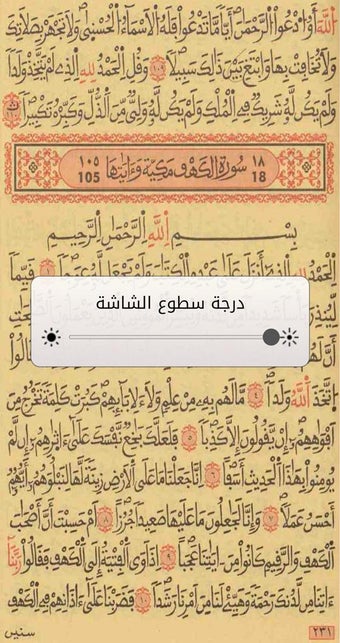 اَللَّهَ أَوُ اُدْعُوا اُلرَّحْمَٰنَ أَيّاً مَّا تَدْعُوا فَلَهُ اُلْأَسْمَآءُ اُلْحُسْنَىٰ وَلَا تَجْهَرْ بِصَلَاتِكَ
وَلَا تُخَافِتْ بِهَا وَابْتَغِ بَيْنَ ذَٰلِكَ سَبِيلاً ١٠٩ وَقُلِ اِلْحَمْدُ لِلهِ اِلذِے لَمْ يَتَّخِذْ وَلَداً
وَلَمْ يَكُن لَّهُۥ شَرِيكٌ فِے اِلْمُلْكِ وَلَمْ يَكُن لَّهُۥ وَلِيٌّ مِّنَ اَلذُّلِّ وَكَبِّرْهُ تَكْبِيراً
١٨ سُورَةُ الكَهْفِ مَكِيَّة وَءَايَاتُهَا ١٠٥
18 105
بِسْمِ اِللَّهِ اِلرَّحْمَٰنِ اِلرَّحِيمِ
اِلْحَمْدُ لِلهِ اِلذِے أَنزَلَ عَلَىٰ عَبْدِهِ اِلْكِتَٰبَ وَلَمْ يَجْعَل لَّهُۥ عِوَجاً ١ قَيِّماً
لِّيُنذِرَ
درجة سطوع الشاشة
أَنَّ لَهُمْ قَالُوا
اُ۪تَّخَذَ اَللَّهُ وَلَداً ٤ مَّا لَهُم بِهِۦ مِنْ عِلْمٍ وَلَا ءَلِأٓبَآئِهِمْ كَبُرَتْ كَلِمَةً تَخْرُجُ مِنْ
أَفْوَٰهِهِمْ إِنْ يَّقُولُونَ إِلَّا كَذِباً ٥ فَلَعَلَّكَ بَٰخِعٌ نَّفْسَكَ عَلَىٰ ءَاثَٰرِهِمْ إِن لَّمْ
يُومِنُوا بِهَٰذَا اَلْحَدِيثِ أَسَفاً ٦ إِنَّا جَعَلْنَا مَا عَلَى اَلْأَرْضِ زِينَةً لَّهَا لِنَبْلُوَهُمْ أَيُّهُمْ
أَحْسَنُ عَمَلاً ٧ وَإِنَّا لَجَٰعِلُونَ مَا عَلَيْهَا صَعِيداً جُرُزاً ٨ أَمْ حَسِبْتَ أَنَّ أَصْحَٰبَ
اَلْكَهْفِ وَالرَّقِيمِ كَانُوا مِنْ ءَايَٰتِنَا عَجَباً ٩ إِذَ اَوَى اَلْفِتْيَةُ إِلَى اَلْكَهْفِ فَقَالُوا رَبَّنَا
ءَاتِنَا مِن لَّدُنكَ رَحْمَةً وَهَيِّئْ لَنَا مِنْ أَمْرِنَا رَشَداً ١٠ فَضَرَبْنَا عَلَىٰ ءَاذَانِهِمْ فِے اِلْكَهْفِ
٢٣١ سنين